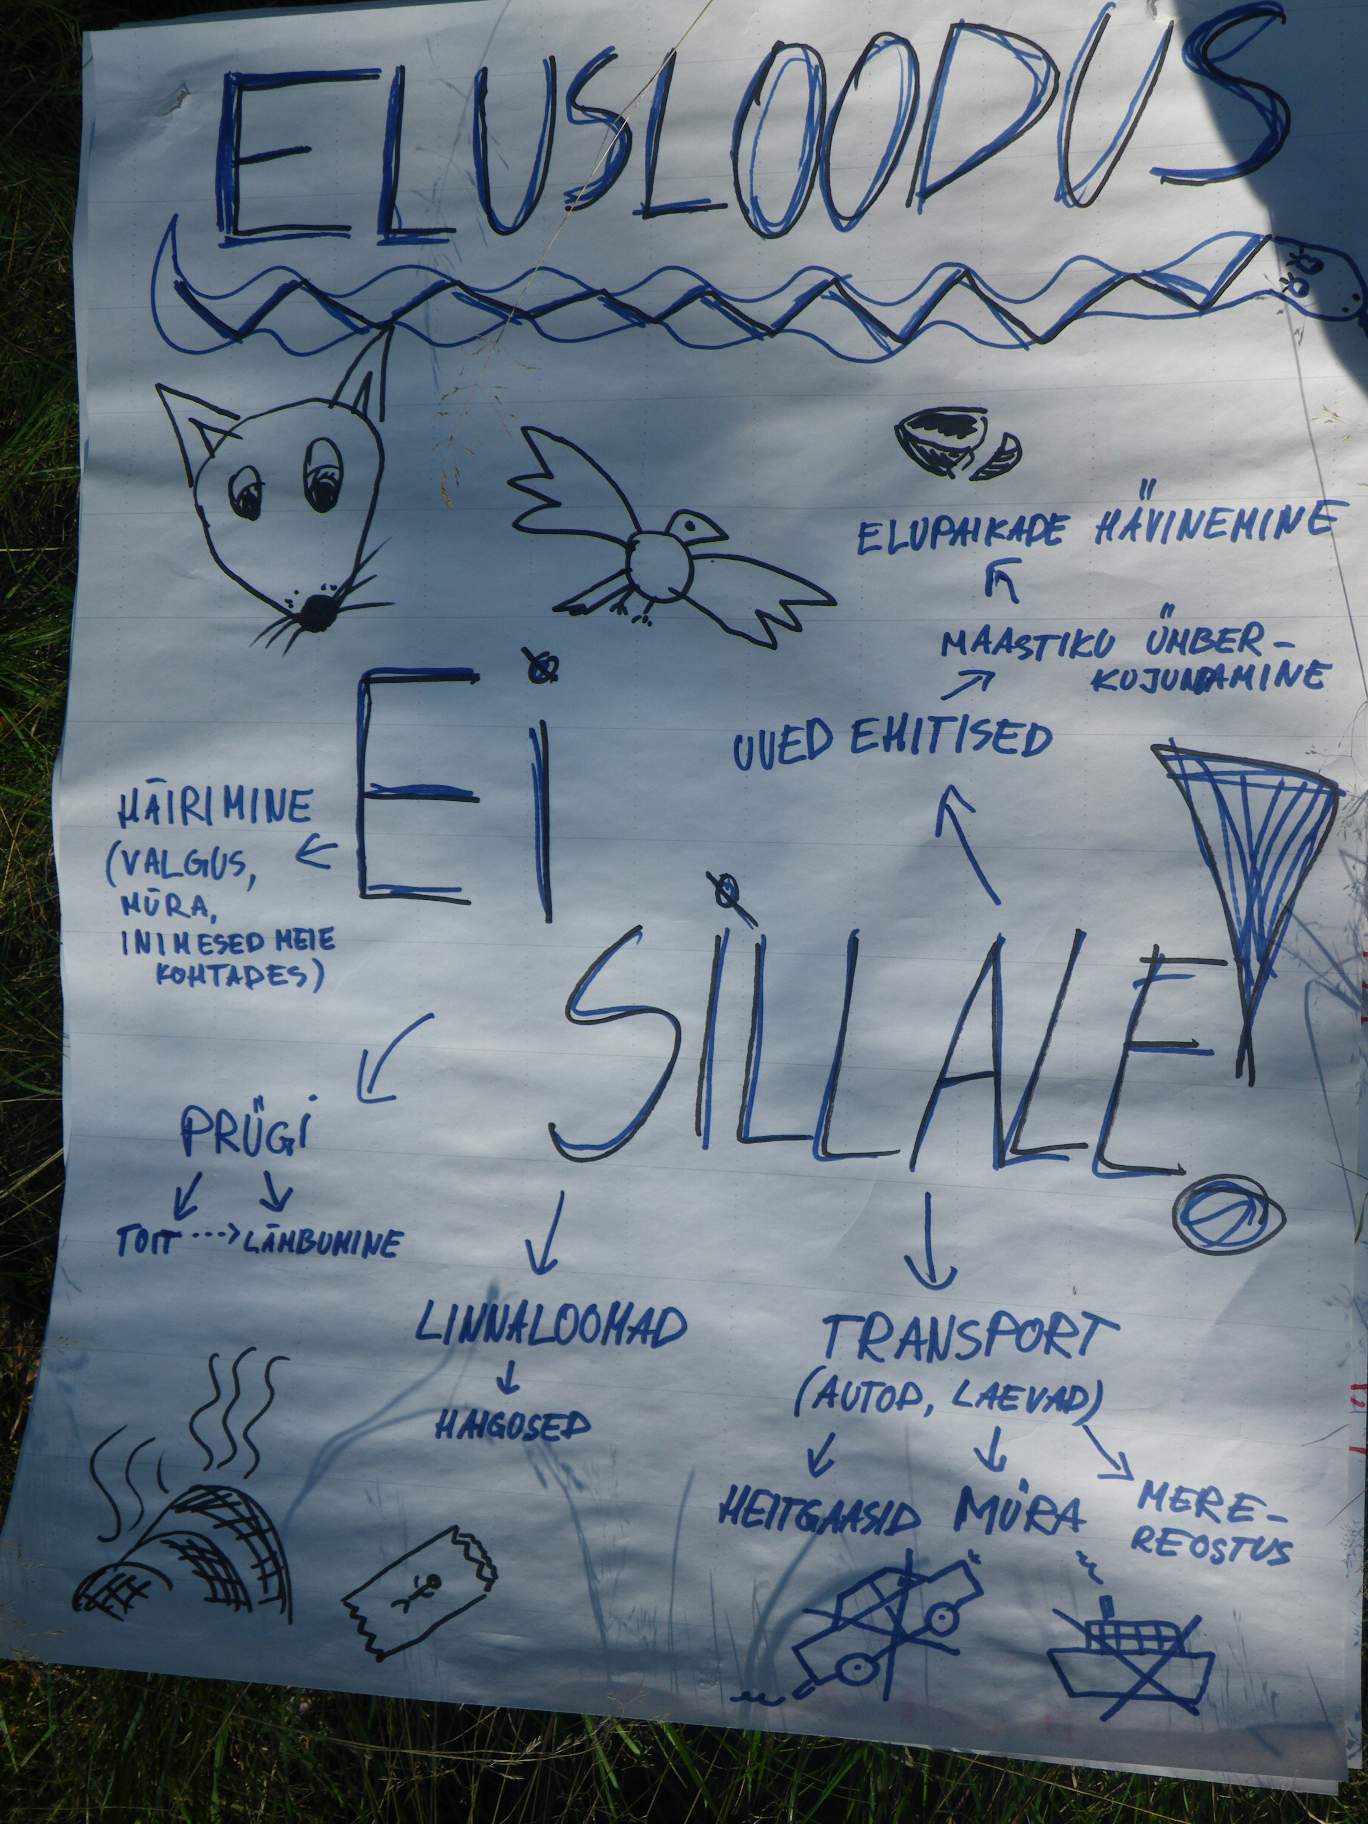 ELUSLOODUS
ELUPAIKADE HÄVINEMINE
MAASTIKU ÜMBER-
KUJUNDAMINE
UUED EHITISED
EI
SILLALE!
HÄIRIMINE
(VALGUS,
MÜRA,
INIMESED MEIE
KOHTADES)
PRÜGI
TOIT ---> LÄMBUMINE
LINNALOOMAD
HAIGUSED
TRANSPORT
(AUTOD, LAEVAD)
HEITGAASID MÜRA MERE-
REOSTUS